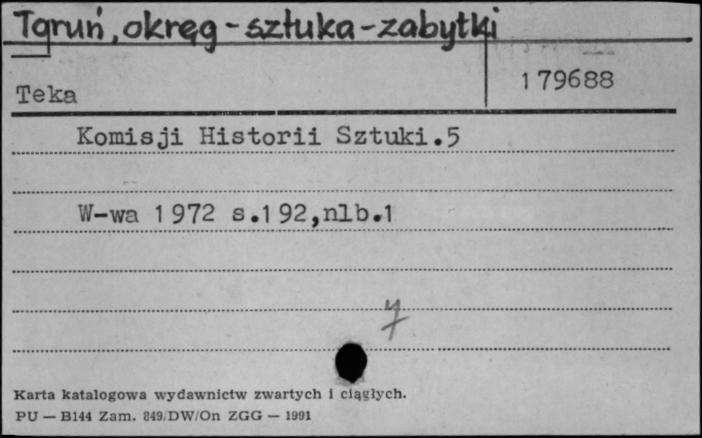 Toruń, okręg - sztuka - zabytki
Teka
179688
Komisji Historii Sztuki.5
W-wa 1972 s.192,nlb.1
Karta katalogowa wydawnictw zwartych i ciągłych.
PU — B144 Zam. 849/DW/On ZGG — 1991